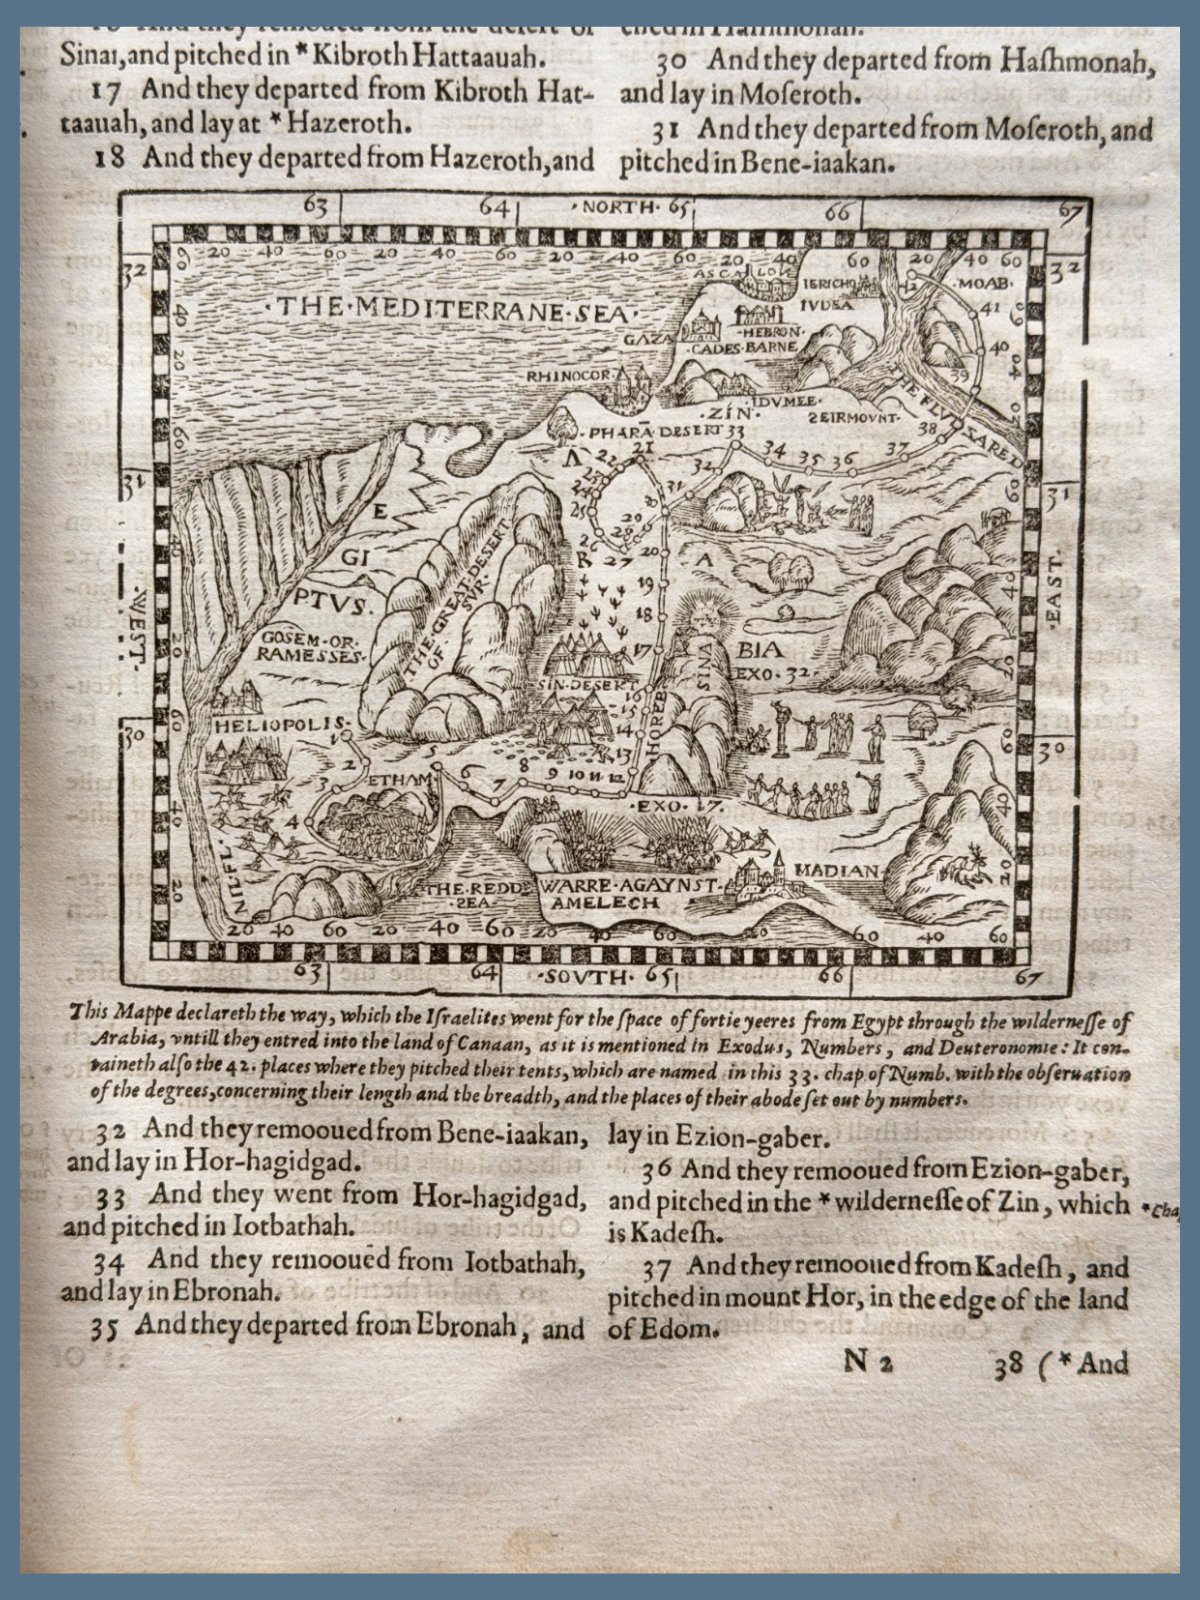 Sinai, and pitched in * Kibroth Hattaauah.
17 And they departed from Kibroth Hat-
taauah, and lay at * Hazeroth.
18 And they departed from Hazeroth, and
30 And they departed from Haſhmonah,
and lay in Moſeroth.
31 And they departed from Moſeroth, and
pitched in Bene-iaakan.
63 64 ·NORTH· 65 66 67
20 40 60 20 40 60 20 40 60 20 40 60 20 40 60
32 32
·THE·MEDITERRANE·SEA·
ASCALLON
IERICHO
IVDEA
·MOAB·
GAZA
·HEBRON·
·CADES·BARNE
RHINOCOR·
IDVMEE·
·ZIN·
SEIRMOVNT·
THE FLV
SARED
PHARA DESERT
42
41
40
39
38
37
36
35
34
33
32
31
21
22
27
20
19
18
17
16
15
14
13
12
11
10
9
8
7
6
5
4
3
2
1
31 31
E
GI
PTVS.
A
R
A
BIA
EXO·32·
THE·GREAT·DESERT·
OF·
SVR·
GOSEM·OR·
RAMESSES·
·WEST·
·EAST·
SIN·DESERT·
SINA
HOREB
HELIOPOLIS·
30 30
ETHAM
·EXO·17·
NIL·FL·
THE·REDDE
·SEA·
WARRE·AGAYNST·
AMELECH
MADIAN
20 40 60 20 40 60 20 40 60 40 60
63 64 ·SOUTH· 65 66 67
This Mappe declareth the way, which the Iſraelites went for the ſpace of fortie yeeres from Egypt through the wilderneſſe of
Arabia, vntill they entred into the land of Canaan, as it is mentioned in Exodus, Numbers, and Deuteronomie: It con-
taineth alſo the 42. places where they pitched their tents, which are named in this 33. chap. of Numb. with the obſeruation
of the degrees, concerning their length and the breadth, and the places of their abode ſet out by numbers.
32 And they remooued from Bene-iaakan,
and lay in Hor-hagidgad.
33 And they went from Hor-hagidgad,
and pitched in Iotbathah.
34 And they remooued from Iotbathah,
and lay in Ebronah.
35 And they departed from Ebronah, and
lay in Ezion-gaber.
36 And they remooued from Ezion-gaber,
and pitched in the * wilderneſſe of Zin, which
is Kadeſh.
37 And they remooued from Kadeſh, and
pitched in mount Hor, in the edge of the land
of Edom.
N 2
38 (* And